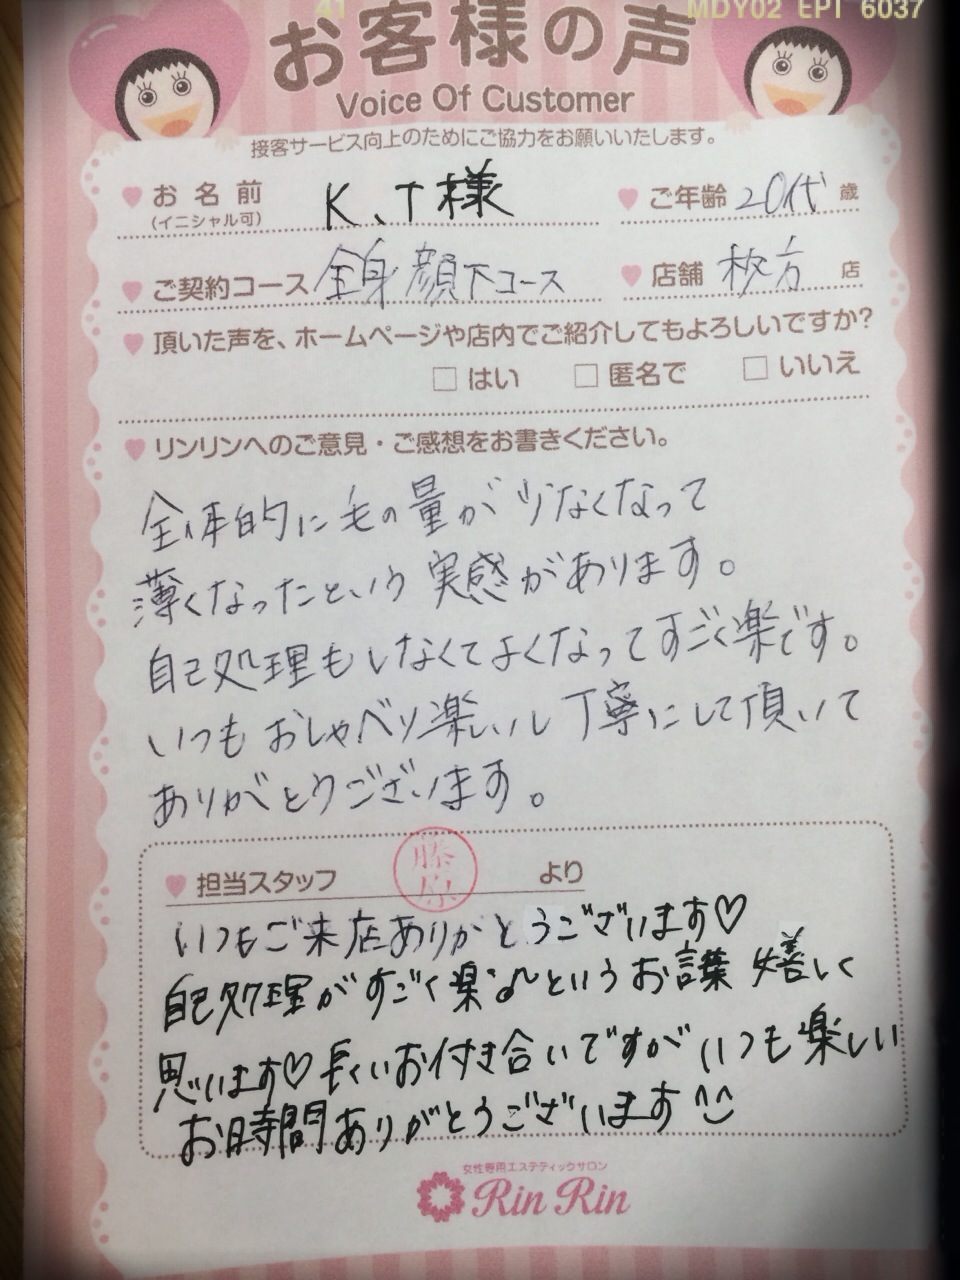 41 MDY02 EPI 6037
お客様の声
Voice Of Customer
接客サービス向上のためにご協力をお願いいたします。
お名前 K、T様 ご年齢 20代 歳
(イニシャル可)
ご契約コース 全身顔下コース 店舗 枚方 店
頂いた声を、ホームページや店内でご紹介してもよろしいですか?
□ はい □ 匿名で □ いいえ
リンリンへのご意見・ご感想をお書きください。
全体的に毛の量が少なくなって
薄くなったという実感があります。
自己処理もしなくてよくなってすごく楽です。
いつもおしゃべり楽しいし丁寧にして頂いて
ありがとうございます。
担当スタッフ 藤原 より
いつもご来店ありがとうございます♡
自己処理がすごく楽♪というお言葉 嬉しく
思います♡長いお付き合いですがいつも楽しい
お時間ありがとうございます^^
女性専用エステティックサロン
Rin Rin